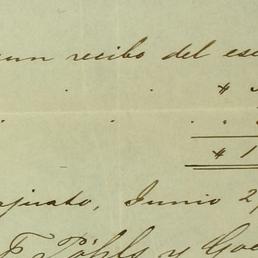 un recibo del es
" "
" "
" 1
ajuato, Junio 2
F. Pohls y Goe